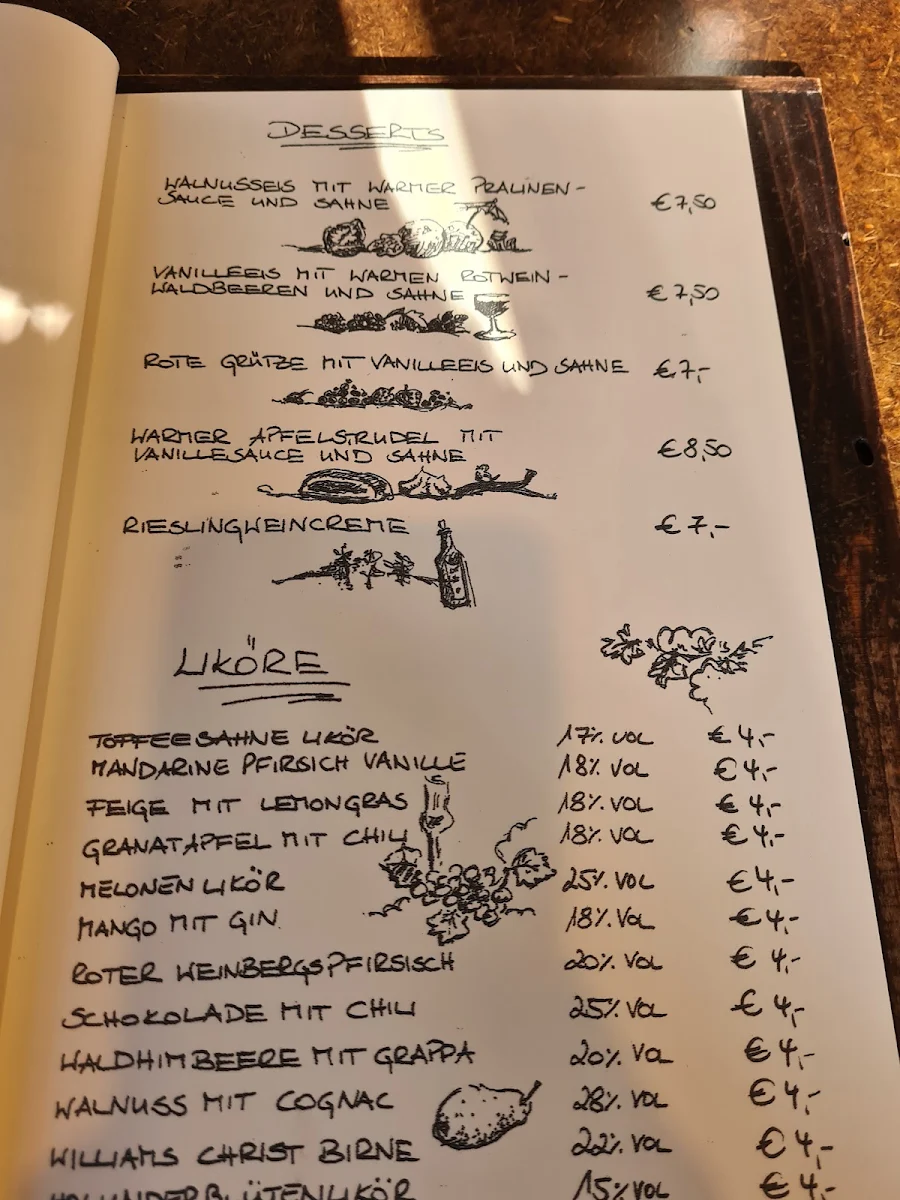 DESSERTS
WALNUSSEIS MIT WARMER PRALINEN-
SAUCE UND SAHNE €7,50
VANILLEEIS MIT WARMEN ROTWEIN-
WALDBEEREN UND SAHNE €7,50
ROTE GRÜTZE MIT VANILLEEIS UND SAHNE €7,-
WARMER APFELSTRUDEL MIT
VANILLESAUCE UND SAHNE €8,50
RIESLINGWEINCREME €7,-
LIKÖRE
TOFFEESAHNE LIKÖR 17% VOL €4,-
MANDARINE PFIRSICH VANILLE 18% VOL €4,-
FEIGE MIT LEMONGRAS 18% VOL €4,-
GRANATAPFEL MIT CHILI 18% VOL €4,-
MELONEN LIKÖR 25% VOL €4,-
MANGO MIT GIN 18% VOL €4,-
ROTER WEINBERGSPFIRSISCH 20% VOL €4,-
SCHOKOLADE MIT CHILI 25% VOL €4,-
WALDHIMBEERE MIT GRAPPA 20% VOL €4,-
WALNUSS MIT COGNAC 28% VOL €4,-
WILLIAMS CHRIST BIRNE 22% VOL €4,-
HOLUNDERBLÜTENLIKÖR 15% VOL €4,-